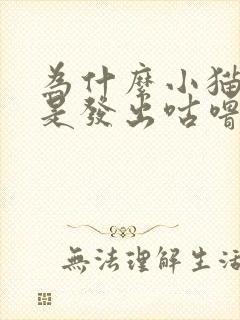 為什麼小猫
是發出咕嚕
無法理解生活